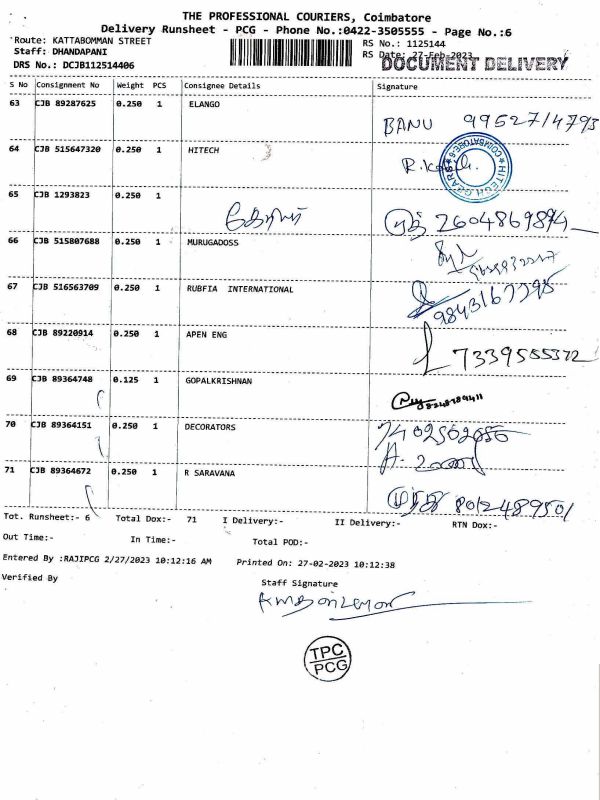 THE PROFESSIONAL COURIERS, Coimbatore
Delivery Runsheet - PCG - Phone No.:0422-3505555 - Page No.:6
Route: KATTABOMMAN STREET
RS No.: 1125144
Staff: DHANDAPANI
RS Date: 27-Feb-2023
DOCUMENT DELIVERY
DRS No.: DCJB112514406
S No Consignment No Weight PCS Consignee Details Signature
63 CJB 89287625 0.250 1 ELANGO
BANU 9952714793
64 CJB 515647320 0.250 1 HITECH
HITECH GEARS COIMBATORE-6
65 CJB 1293823 0.250 1
2604869894
66 CJB 515807688 0.250 1 MURUGADOSS
67 CJB 516563709 0.250 1 RUBFIA INTERNATIONAL
9843167798
68 CJB 89220914 0.250 1 APEN ENG
7339555372
69 CJB 89364748 0.125 1 GOPALKRISHNAN
70 CJB 89364151 0.250 1 DECORATORS
7402502056
71 CJB 89364672 0.250 1 R SARAVANA
8012489501
Tot. Runsheet:- 6 Total Dox:- 71 I Delivery:- II Delivery:- RTN Dox:-
Out Time:- In Time:- Total POD:-
Entered By :RAJIPCG 2/27/2023 10:12:16 AM Printed On: 27-02-2023 10:12:38
Verified By Staff Signature
TPC
PCG